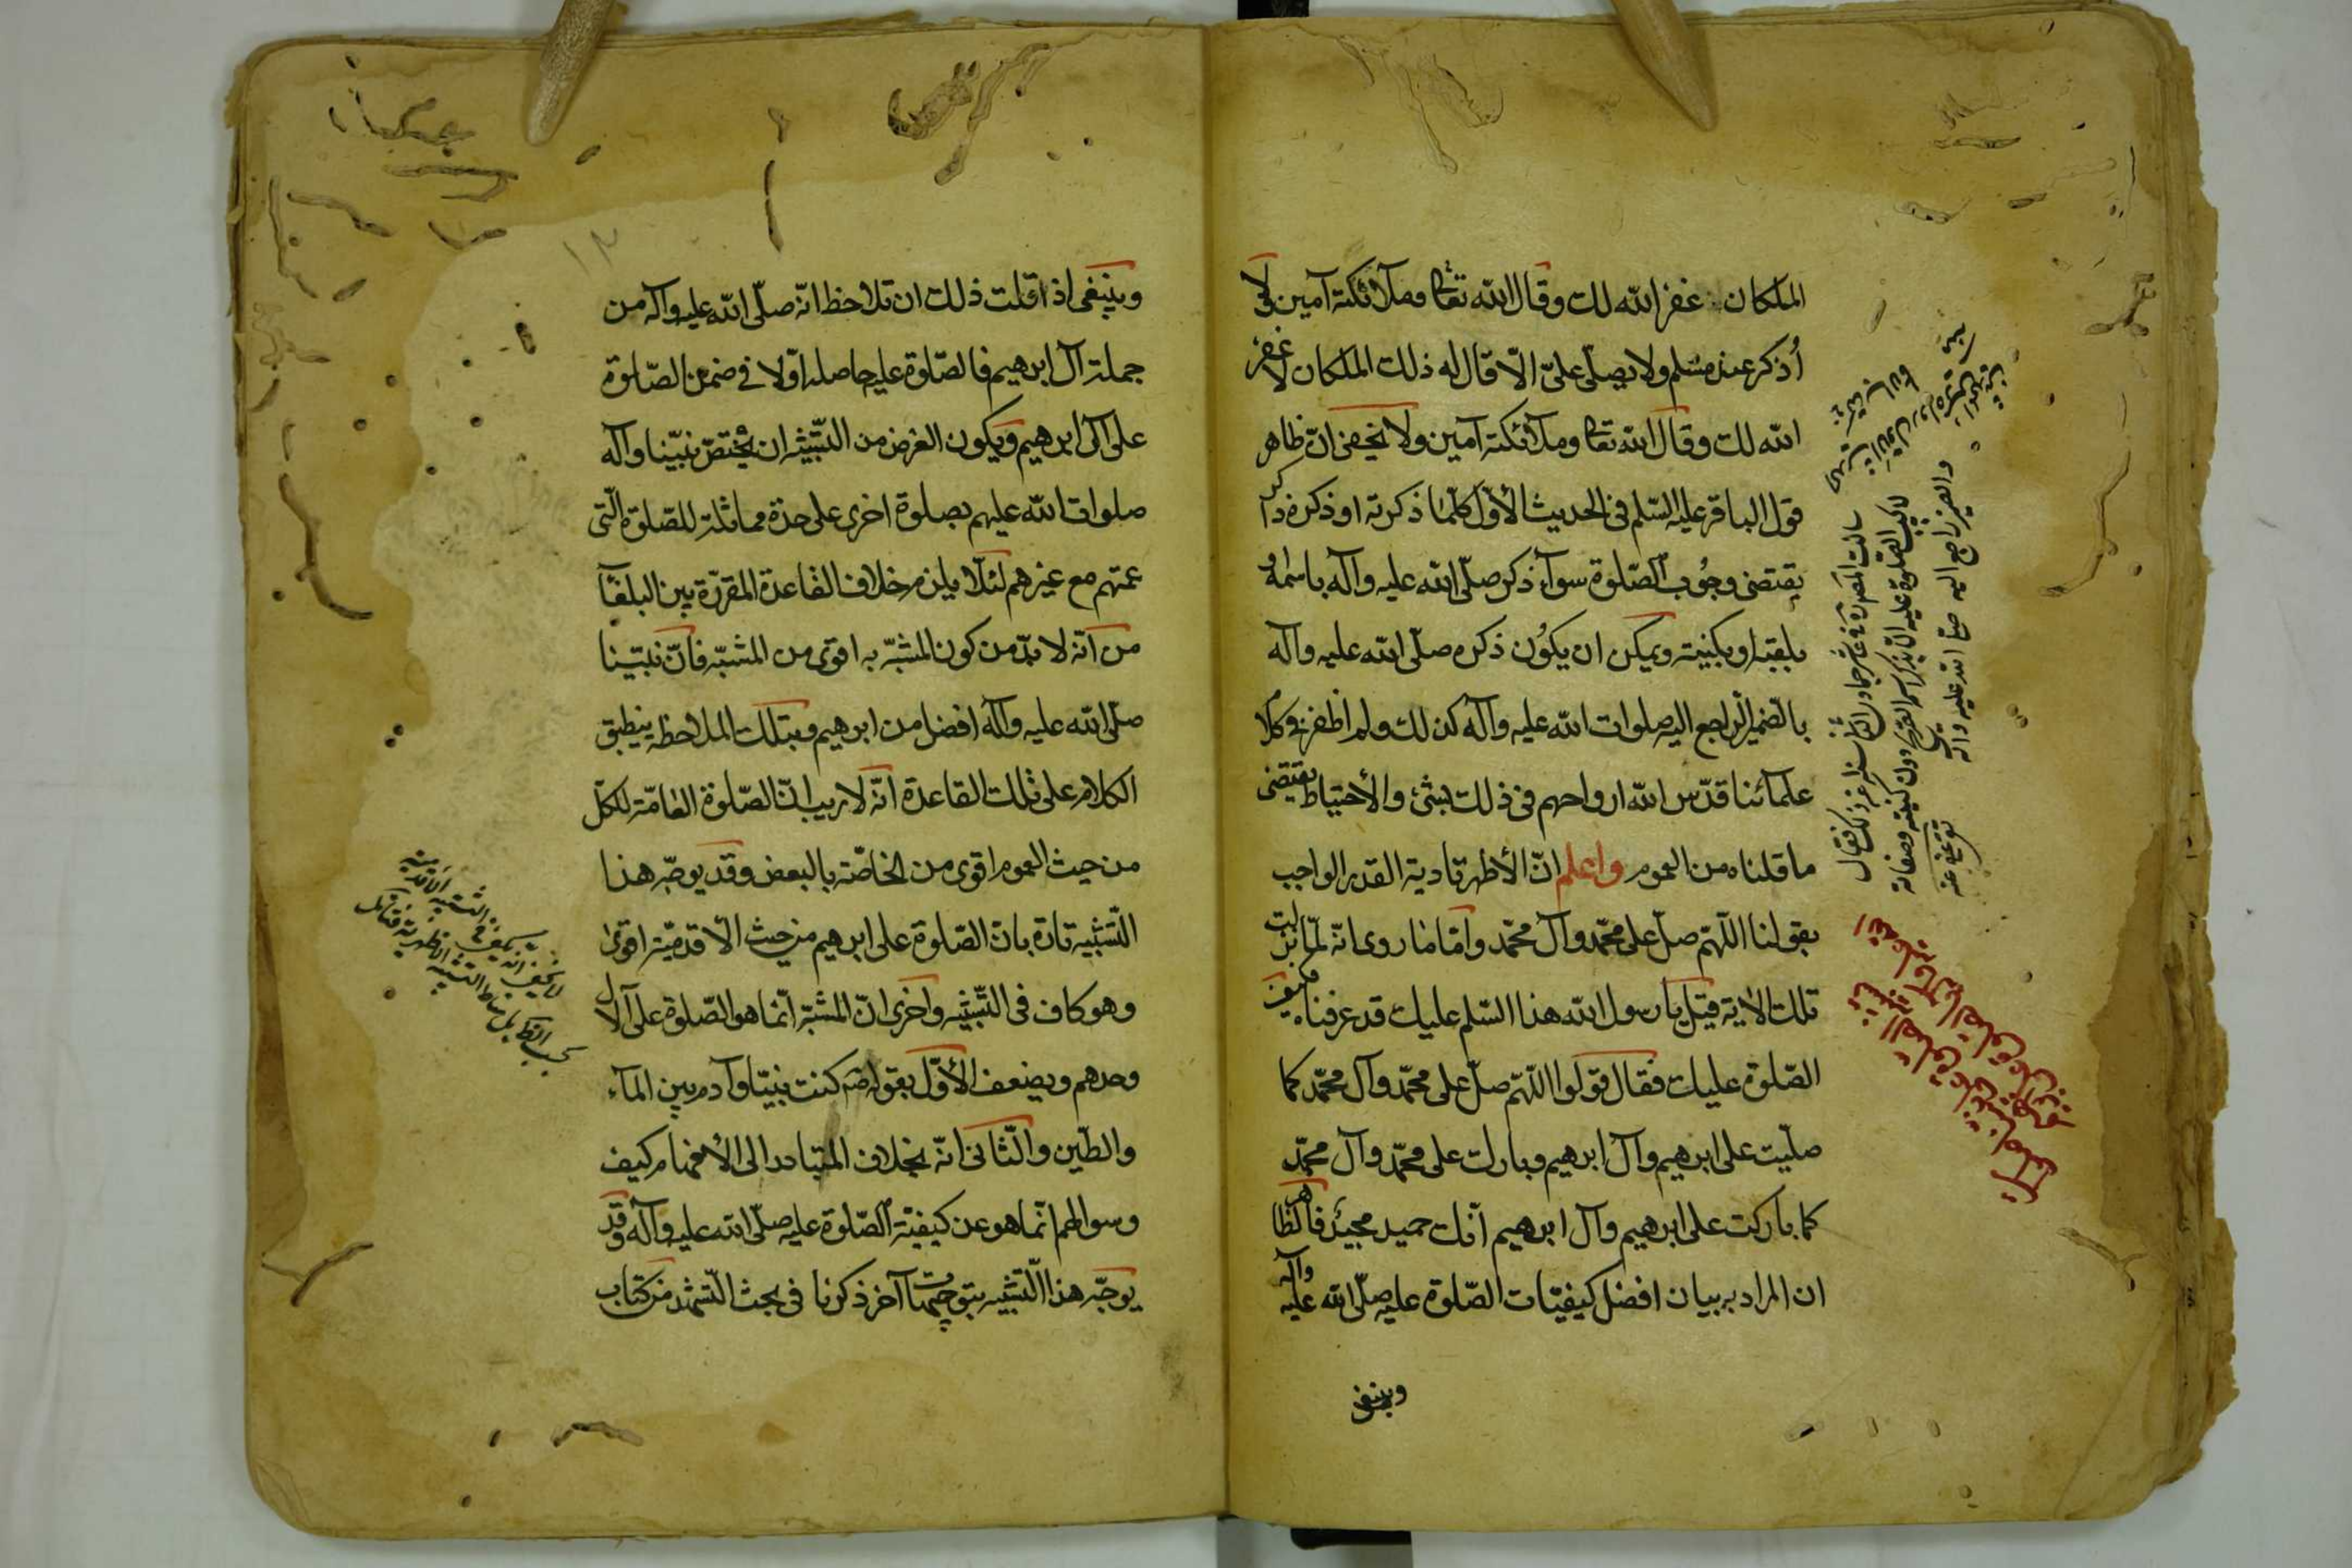 الملكان غفر الله لك وقال الله تعالى وملائكته آمين ولا
أذكر عند مسلم ولا يصلّي عليّ الّا قال له ذلك الملكان لا غفر
الله لك وقال الله تعالى وملائكته آمين ولا يخفى انّ ظاهر
قول الباقر عليه السّلم في الحديث الأوّل كلّما ذكرته او ذكره ذاكر
يقتضى وجوب الصّلوة سوآء ذكر صلّى الله عليه وآله باسمه او
بلقبه او بكنيته ويمكن ان يكون ذكره صلّى الله عليه وآله
بالضّمير الرّاجع اليه صلوات الله عليه وآله كذلك ولم اظفر في كلام
علمآئنا قدّس الله ارواحهم في ذلك بشئ والأحتياط يقتضى
ما قلناه من العموم واعلم انّ الأظهر تادية القدر الواجب
بقولنا اللّهمّ صلّ على محمّد وآل محمّد وامّا ما روى انّه لمّا نزلت
تلك الأية قيل يا رسول الله هذا السّلم عليك قد عرفناه فكيف
الصّلوة عليك فقال قولوا اللّهمّ صلّ على محمّد وآل محمّد كما
صلّيت على ابرهيم وآل ابرهيم وبارك على محمّد وآل محمّد
كما باركت على ابرهيم وآل ابرهيم انّك حميد مجيد فالظّاهر
ان المراد به بيان افضل كيفيّات الصّلوة عليه صلّى الله عليه وآله
وينبغى
سالت
فقال
لا يجب الصلوة عليه الا
اسمه الشريف دون كنيته وصفاته
والضمير راجع اليه صلى الله عليه وآله
وينبغى اذا قلت ذلك ان تلاحظ انّه صلّى الله عليه وآله من
جملة آل ابرهيم فالصّلوة عليه حاصلة اوّلا في ضمن الصّلوة
على آل ابرهيم ويكون الغرض من التّشبيه ان يختصّ نبيّنا وآله
صلوات الله عليهم بصلوة اخرى على حدة مماثلة للصّلوة الّتى
عمّتهم مع غيرهم لئلّا يلزم خلاف القاعدة المقرّرة بين البلغآء
من انّه لا بدّ من كون المشبّه به اقوى من المشبّه فانّ نبيّنا
صلّى الله عليه وآله افضل من ابرهيم وبتلك الملاحظه ينطبق
الكلام على تلك القاعدة انّه لا ريب انّ الصّلوة العامّة للكلّ
من حيث العموم اقوى من الخاصّة بالبعض وقد يوجّه هذا
التّشبيه تارة بانّ الصّلوة على ابرهيم من حيث الأقدميّة اقوى
وهو كاف في التّشبيه واخرى انّ المشبّه انّما هو الصّلوة على الآل
وحدهم ويضعف الأوّل بقوله ص كنت نبيّا وآدم بين المآء
والطّين والثّانى انّه بخلاف المتبادر الى الأفهام كيف
وسوالهم انّما هو عن كيفيّة الصّلوة عليه صلّى الله عليه وآله وقد
يوجّه هذا التّشبيه بتوجيهات آخر ذكرنا في بحث التّشهّد من كتاب